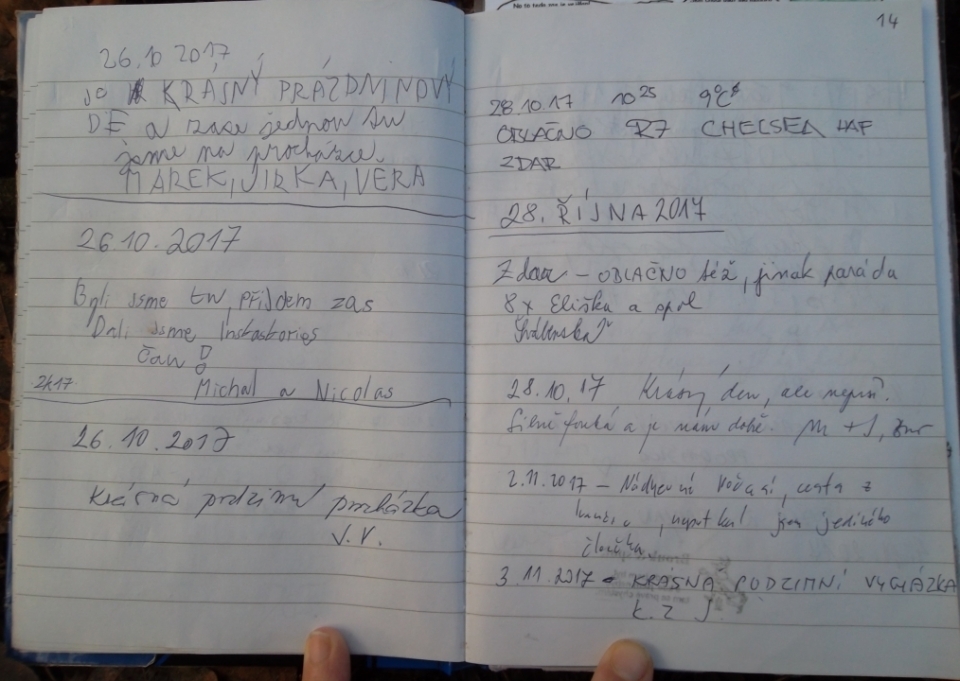 26.10 2017
JO KRÁSNÝ PRÁZDNINOVÝ
DE a zase jednou tu
jsme na procházce.
MAREK, JIRKA, VERA
26.10.2017
Byli jsme tu, přijdem zas
Dali jsme Instastories
Čau!
2k17
Michal a Nicolas
26.10.2017
Krásná podzimní procházka
V.V.
14
28.10.17 10 25 9°C
OBLAČNO R7 CHELSEA HAF
ZDAR
28. ŘÍJNA 2017
Zdar - OBLAČNO též, jinak paráda
8x Eliška a spol
28.10.17 Krásný den, ale neprší.
Silně fouká a je nám dobře. M + J,
2.11.2017 - Nádherné počasí, cesta z
, nepotkal jsem jediného
človíčka
3.11.2017 - KRÁSNÁ PODZIMNÍ VYCHÁZKA
Ł. Z J